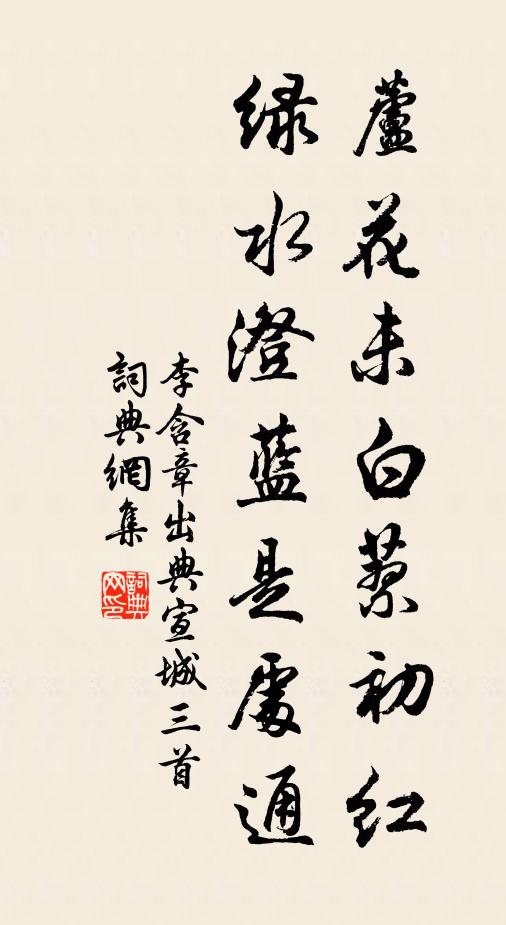 蘆花未白蓼初紅
綠水澄藍是處通
李含章出典宣城三首
詞典網集
詞典網印